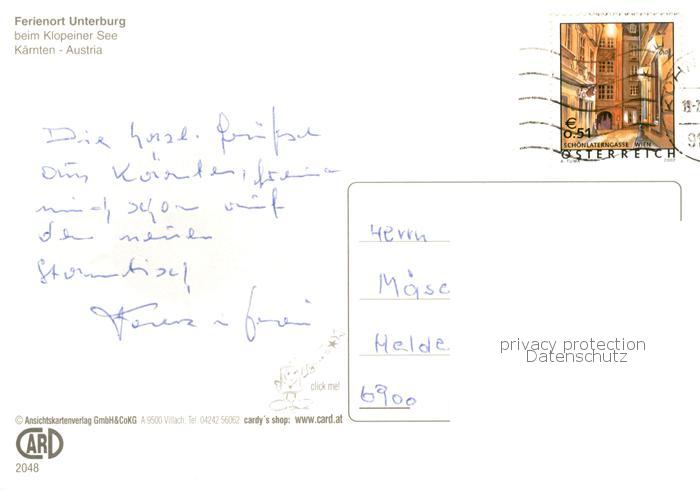 Ferienort Unterburg
beim Klopeiner See
Kärnten - Austria
€
0.51
SCHÖNLATERNGASSE WIEN
ÖSTERREICH
A. TUMA 2002
Die herzl. Grüße
aus Kärnten, freue
mich schon auf
den neuen
Stammtisch
Herrn
Mäse
Helde
6900
privacy protection
Datenschutz
click me!
© Ansichtskartenverlag GmbH&CoKG A 9500 Villach, Tel. 04242 56062 cardy's shop: www.card.at
CARD
2048